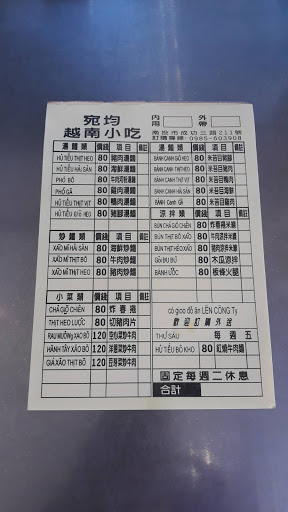 宛均
越南小吃
內用 外帶
南投市成功三路211號
訂購專線:0985-603908
湯麵類 價錢 項目 備註
HỦ TIẾU THỊT HEO 80 豬肉湯麵
HỦ TIẾU HẢI SẢN 80 海鮮湯麵
PHỞ BÒ 80
PHỞ GÀ 80 雞肉湯麵
HỦ TIẾU THỊT VỊT 80 鴨肉湯麵
HỦ TIẾU GIÒ HEO 80 豬腳湯麵
炒麵類 價錢 項目 備註
XÀO MÌ HẢI SẢN 80 海鮮炒麵
XÀO MÌ THỊT BÒ 80 牛肉炒麵
XÀO MÌ THỊT HEO 80 豬肉炒麵
小菜類 價錢 項目 備註
CHẢ GIÒ CHIÊN 80 炸春捲
THỊT HEO LUỘC 80 切豬肉片
RAU MUỐNG XÀO BÒ 120 空心菜炒牛肉
HÀNH TÂY XÀO BÒ 120 洋蔥炒牛肉
GIÁ XÀO THỊT BÒ 120 豆芽菜炒牛肉
湯麵類 價錢 項目 備註
BÁNH CANH GIÒ HEO 80 米苔目豬腳
BÁNH CANH THỊT HEO 80 米苔目豬肉
BÁNH CANH THỊT VỊT 80 米苔目鴨肉
BÁNH CANH HẢI SẢN 80 米苔目海鮮
BÁNH CANH GÀ 80 米苔目雞肉
涼拌類 價錢 項目 備註
BÚN CHẢ GIÒ CHIÊN 80 炸春捲米線
BÚN THỊT BÒ XÀO 80 牛肉涼拌米線
BÚN THỊT HEO XÀO 80 豬肉涼拌米線
GỎI ĐU ĐỦ 80 木瓜涼拌
BÁNH ƯỚT 80 板條火腿
có giao đồ ăn LÊN CÔNG Ty
歡迎訂購外送
THỨ SÁU 每週五
HỦ TIẾU BÒ KHO 80 紅燒牛肉麵
固定每週二休息
合計